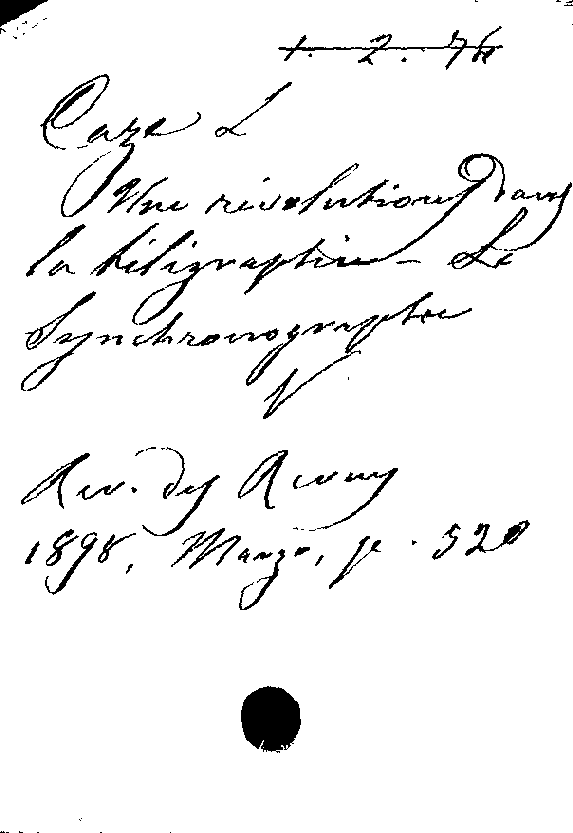 1. 2. 74
Caze L
Une révolution dans
la téligraphie - Le
Synchronographe
V
Rev. des Revues
1898, Marzo, p. 520